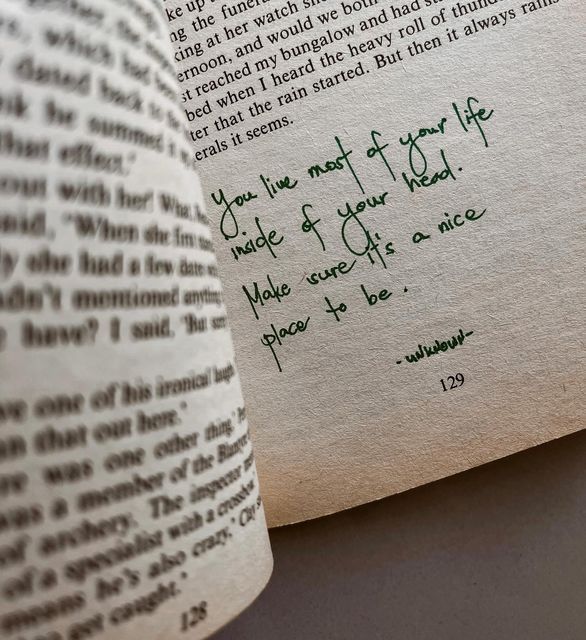 ke up
ng the funer
king at her watch sh
ernoon, and would we both
st reached my bungalow and had s
bed when I heard the heavy roll of thun
ter that the rain started. But then it always rains
erals it seems.
You live most of your life
inside of your head.
Make sure it's a nice
place to be.
-unknown-
129
which had
dated back to
he summed it
that effect.'
out with her? What
said, 'When she first
she had a few date
hadn't mentioned anything
have? I said, 'But
one of his ironical laugh
on that out here.'
was one other thing.'
was a member of the
of archery. The inspector
of a specialist with a crossbow
means he's also crazy.'
got caught.'
128